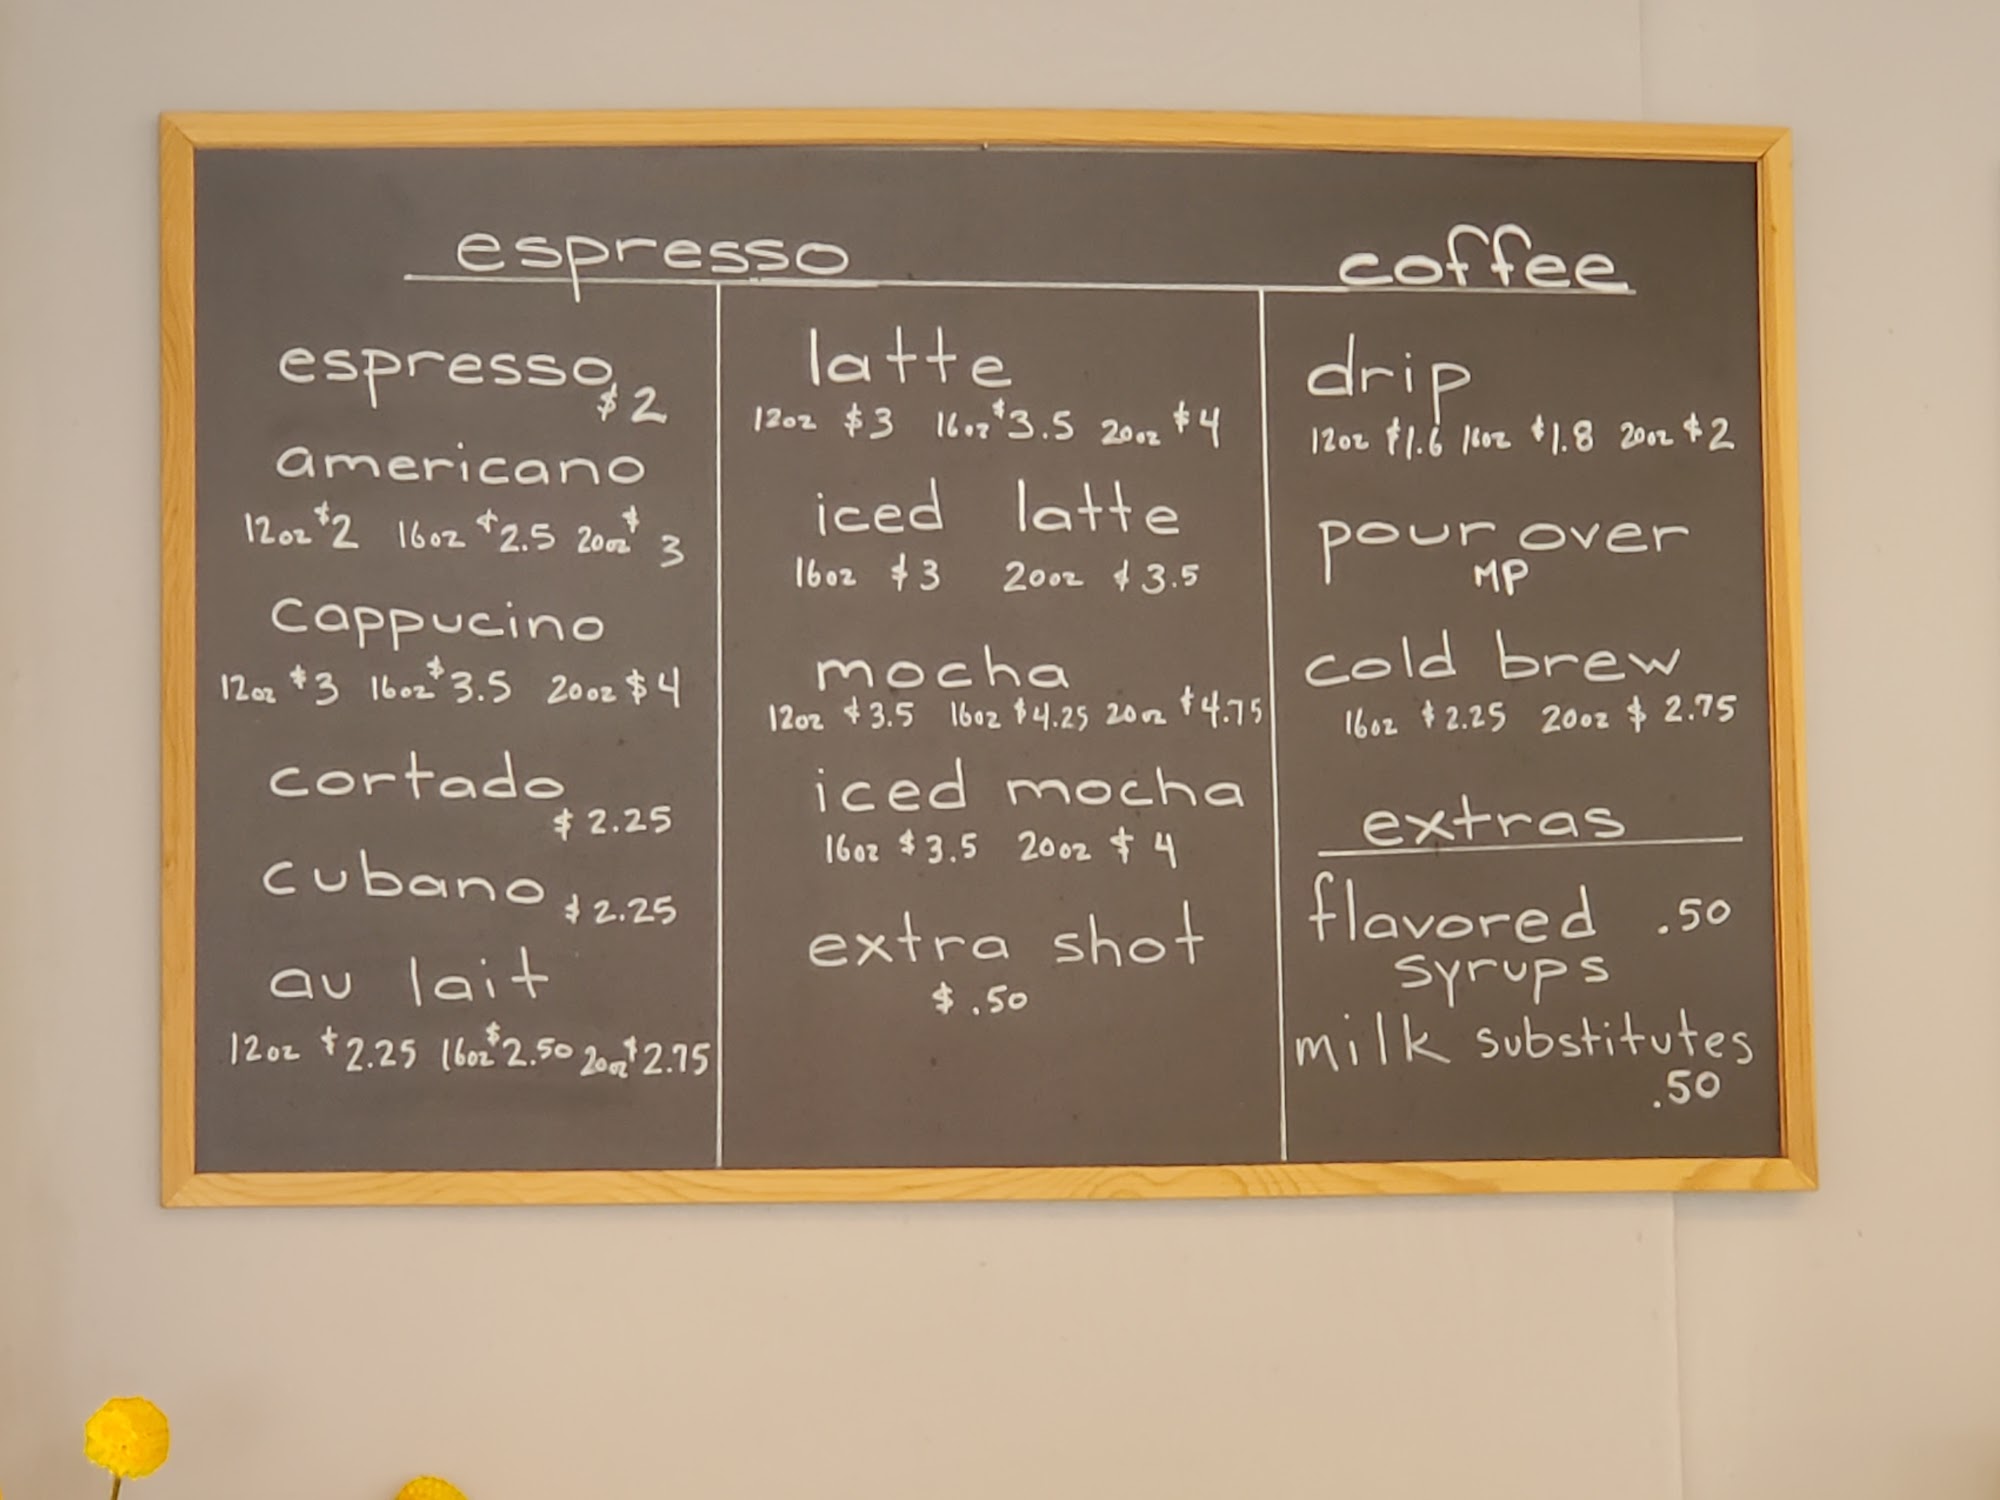 espresso
espresso
$2
americano
12oz $2 16oz $2.5 20oz $3
cappucino
12oz $3 16oz $3.5 20oz $4
cortado
$2.25
cubano $2.25
au lait
12oz $2.25 16oz $2.50 20oz $2.75
latte
12oz $3 16oz $3.5 20oz $4
iced latte
16oz $3 20oz $3.5
mocha
12oz $3.5 16oz $4.25 20oz $4.75
iced mocha
16oz $3.5 20oz $4
extra shot
$.50
coffee
drip
12oz $1.6 16oz $1.8 20oz $2
pour over
MP
cold brew
16oz $2.25 20oz $2.75
extras
flavored .50
syrups
milk substitutes
.50